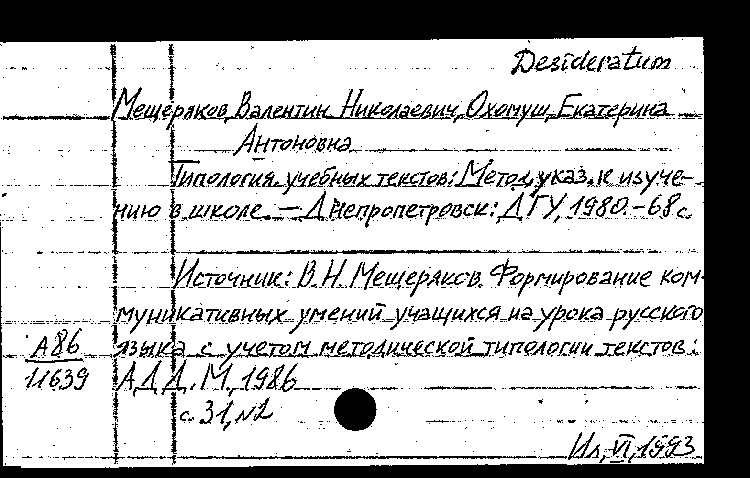 Desideratum
Мещеряков, Валентин Николаевич, Охомуш, Екатерина
Антоновна
Типология учебных текстов: Метод. указ. к изуче-
нию в школе. — Днепропетровск: ДГУ, 1980. - 68 с.
Источник: В. Н. Мещеряков. Формирование ком-
муникативных умений учащихся на урока русского
А86 языка с учетом методической типологии текстов:
11639 АДД. М, 1986
с. 31, №2
Ил, VI, 1993